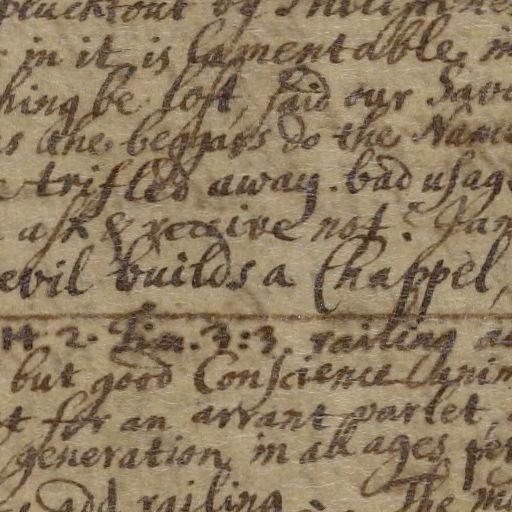 pluckt out by
in it is lamentable, in
hing be lost, said our Savi
as the beggars do the Name
trifled away. bad usage
ask & receive not? Jam
evil builds a Chappel,
2. Tim. 3:3 railing ac
but good Conscience
t for an arrant varlet,
generation, in all ages per
add railing The